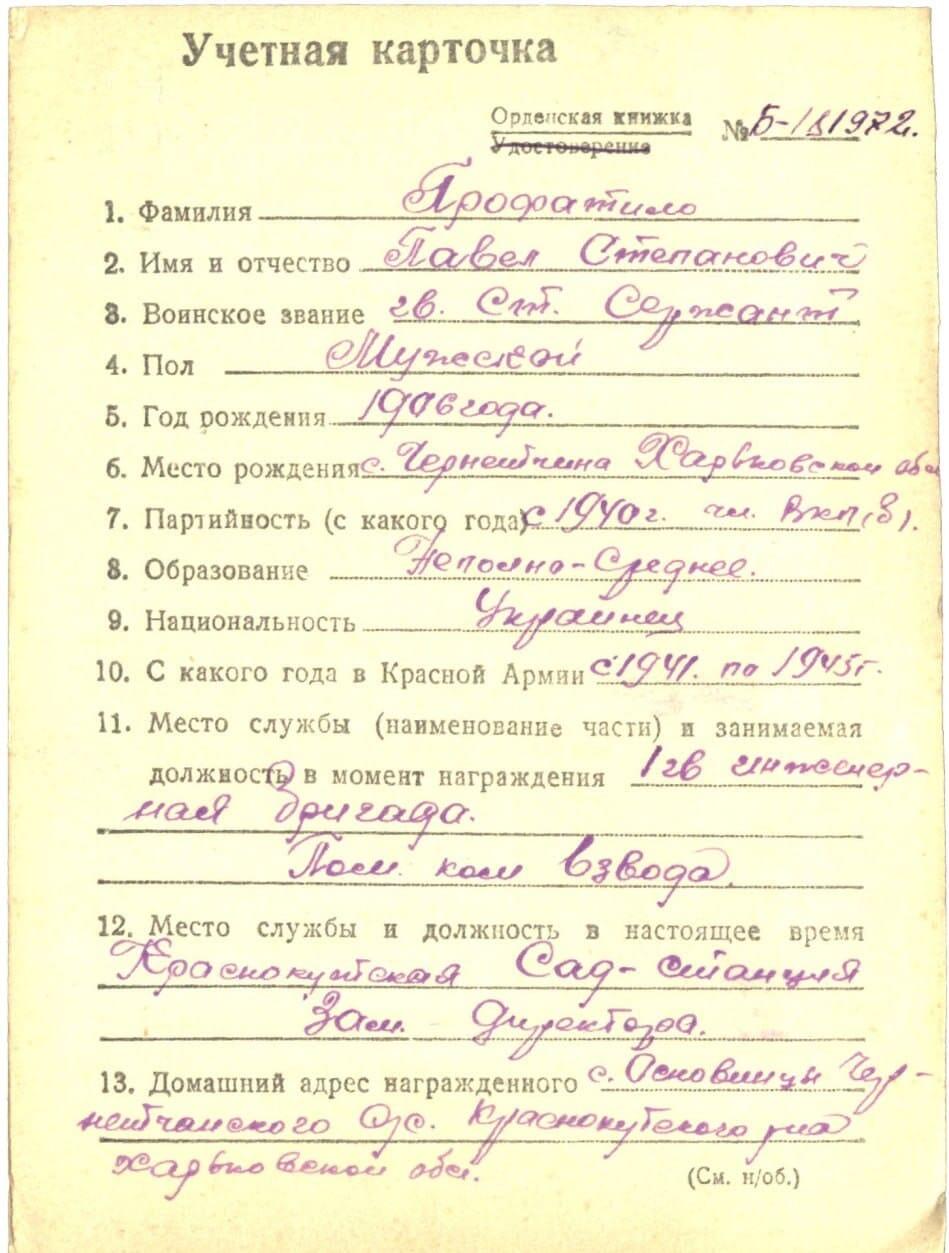 Учетная карточка
Орденская книжка № Б-181972.
Удостоверение
1. Фамилия Профатило
2. Имя и отчество Павел Степанович
3. Воинское звание гв. Ст. Сержант
4. Пол Мужской
5. Год рождения 1906 года.
6. Место рождения с. Чернетчина Харьковской обл
7. Партийность (с какого года) с 1940 г. чл. ВКП(б).
8. Образование Неполно-Среднее.
9. Национальность Украинец
10. С какого года в Красной Армии с 1941. по 1945г.
11. Место службы (наименование части) и занимаемая
должность в момент награждения 1 гв инженер-
ная бригада.
Пом. ком взвода
12. Место службы и должность в настоящее время
Краснокутская Сад-станция
Зам. Директора.
13. Домашний адрес награжденного с. Основинцы Чер-
нетчанского С/с. Краснокутского р-на
Харьковской обл.
(См. н/об.)